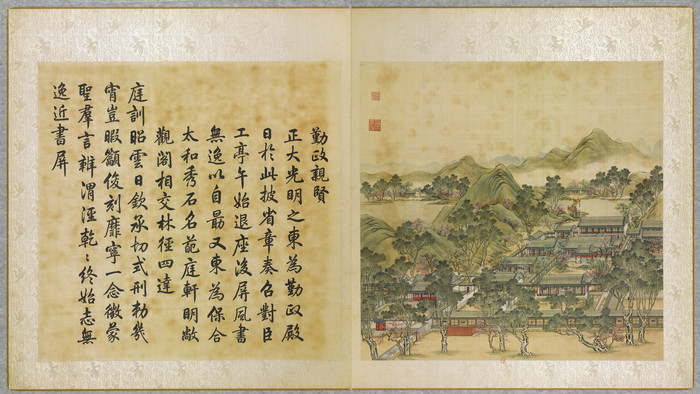 勤政親賢
正大光明之東為勤政殿
日於此披省章奏召對臣
工亭午始退座後屏風書
無逸以自勗又東為保合
太和秀石名葩庭軒明敞
觀閣相交林徑四達
庭訓昭雲日欽承切式刑勑幾
宵豈暇籲俊刻靡寧一念徽蒙
聖羣言辨渭涇乾〻終始志無
逸近書屏